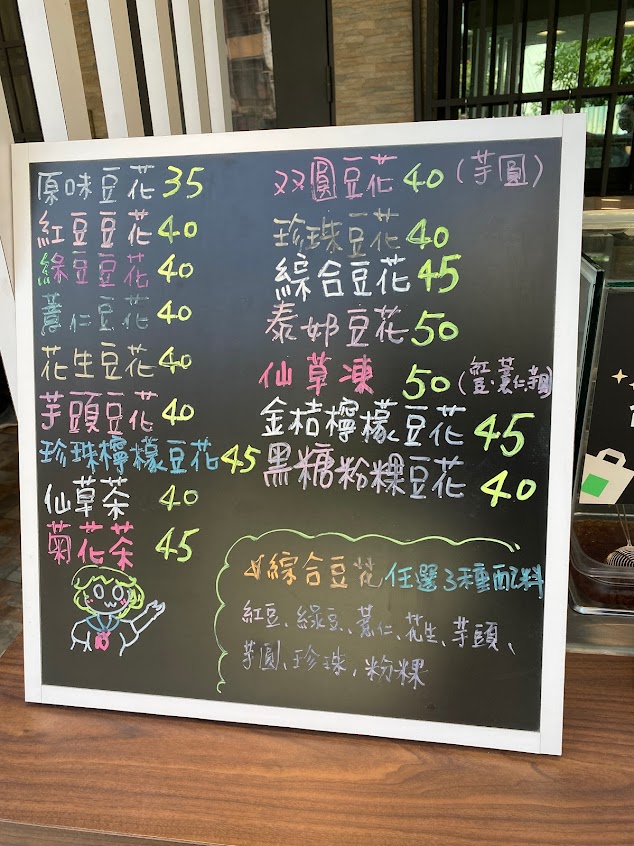 原味豆花 35
紅豆豆花 40
綠豆豆花 40
薏仁豆花 40
花生豆花 40
芋頭豆花 40
珍珠檸檬豆花 45
仙草茶 40
菊花茶 45
双圓豆花 40 (芋圓)
珍珠豆花 40
綜合豆花 45
泰奶豆花 50
仙草凍 50 (紅豆.薏仁.芋圓)
金桔檸檬豆花 45
黑糖粉粿豆花 40
綜合豆花 任選3種配料
紅豆、綠豆、薏仁、花生、芋頭、
芋圓、珍珠、粉粿